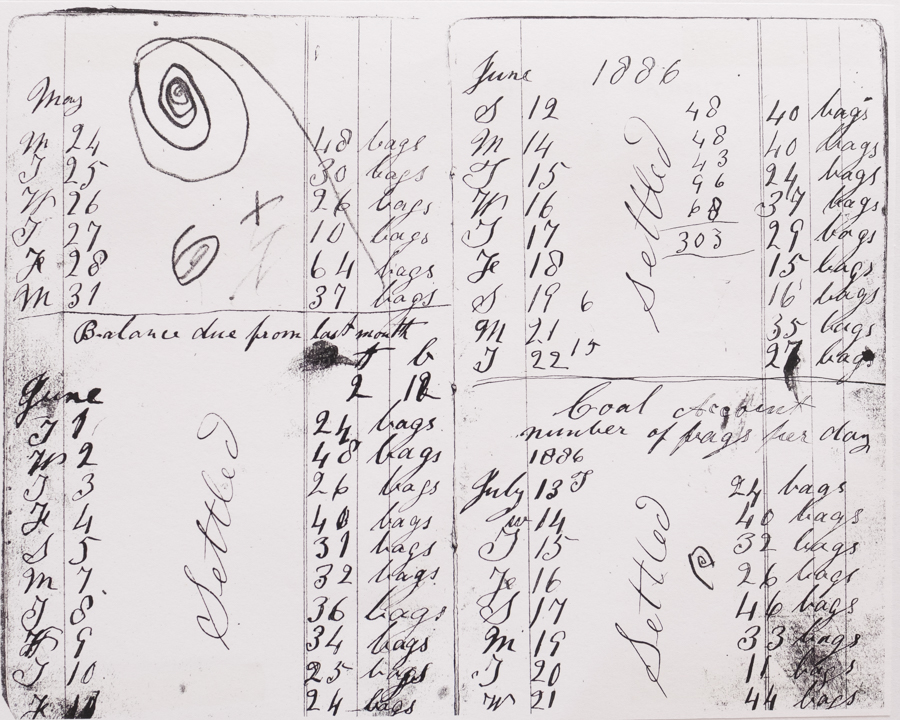 May
M 24 48 bags
T 25 30 bags
W 26 26 bags
T 27 10 bags
Fr 28 64 bags
M 31 37 bags
Balance due from last month
t b
2 12
June
T 1 24 bags
W 2 48 bags
T 3 26 bags
Fr 4 40 bags
S 5 31 bags
M 7 32 bags
T 8 36 bags
W 9 34 bags
T 10 25 bags
Fr 11 24 bags
Settled
June 1886
S 12 40 bags
M 14 40 bags
T 15 24 bags
W 16 37 bags
T 17 29 bags
Fr 18 15 bags
S 19 6 16 bags
M 21 35 bags
T 22 15 27 bags
Settled
48
48
43
96
68
303
Coal Account
number of bags per day
1886
July 13 T 24 bags
W 14 40 bags
T 15 32 bags
Fr 16 26 bags
S 17 46 bags
M 19 33 bags
T 20 11 bags
W 21 44 bags
Settled